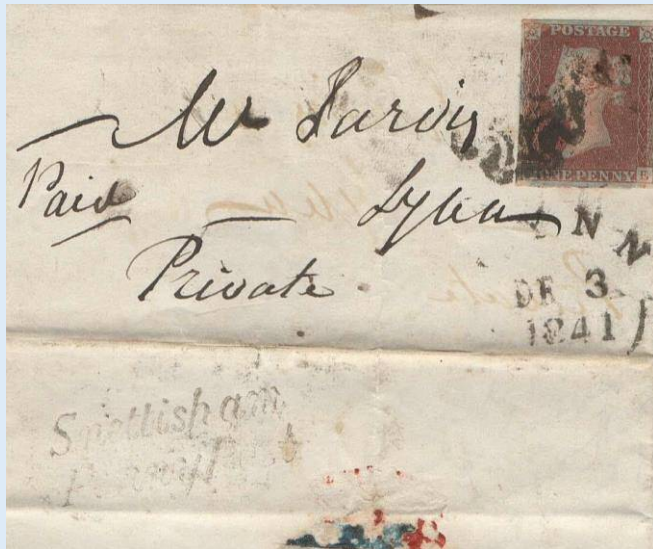 POSTAGE
ONE PENNY
Mr Jarvis
Paid
Lynn
Private
NN
DE 3
1841
Snettisham
Penny Post